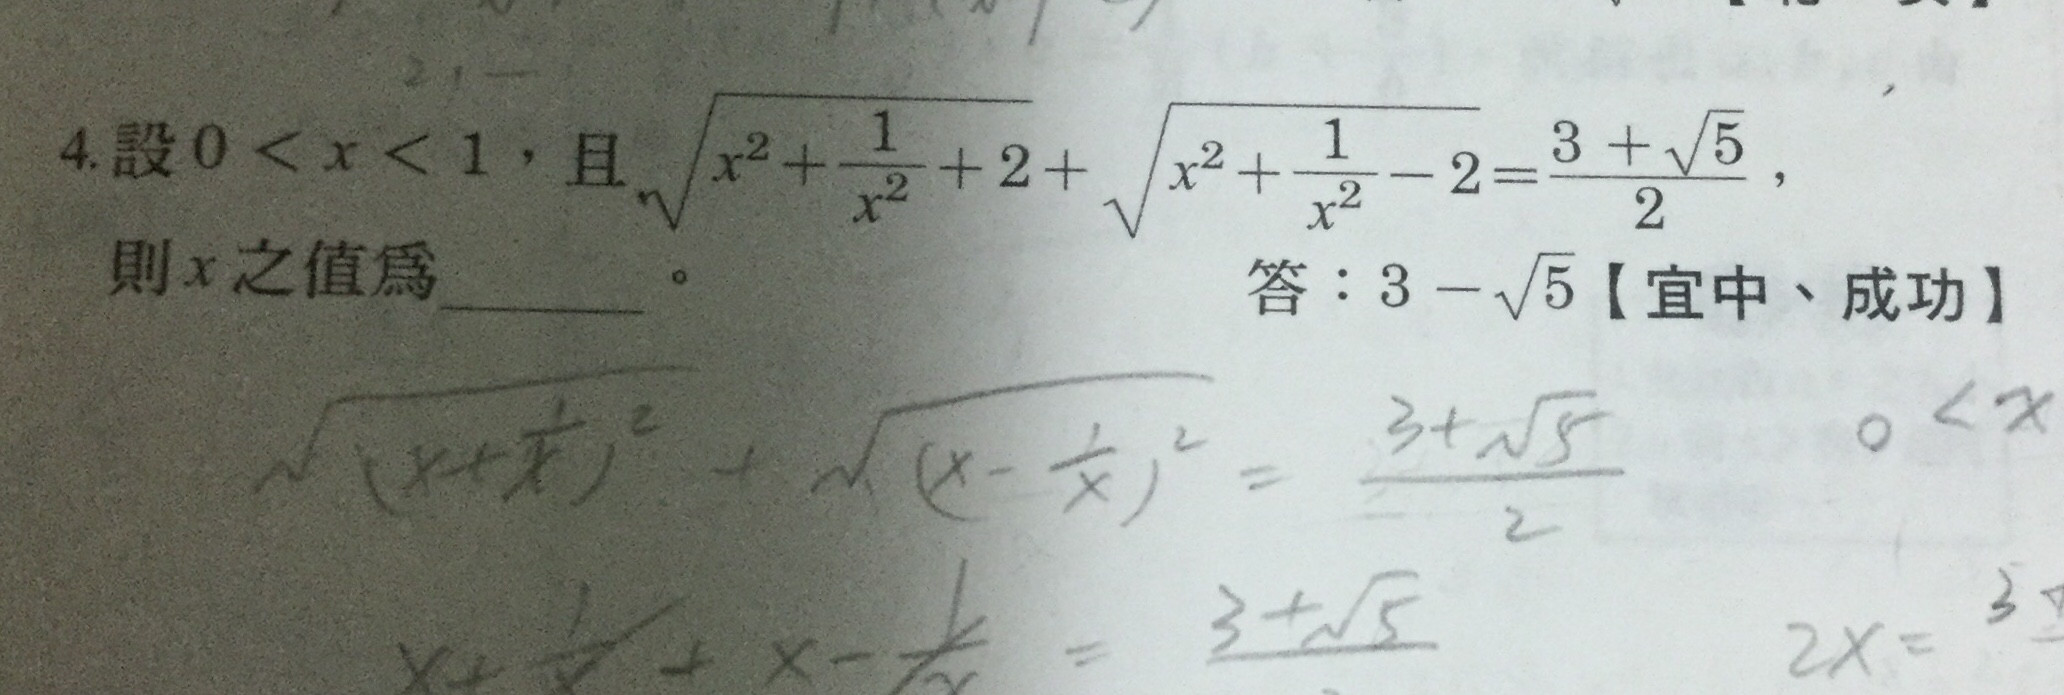 4. 設 0 < x < 1，且 √(x² + 1/x² + 2) + √(x² + 1/x² − 2) = (3 + √5)/2，
則 x 之值爲______。
答：3 − √5【宜中、成功】
√(x + 1/x)² + √(x − 1/x)² = (3 + √5)/2
0 < x
x + 1/x + x − 1/x = 3 + √5
2x = 3